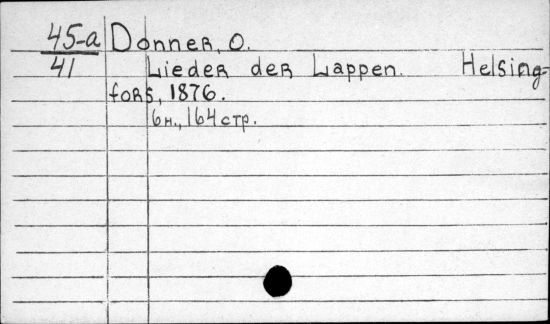 45-a Donner, O.
41 Lieder der Lappen. Helsing-
fors, 1876.
6н., 164 стр.